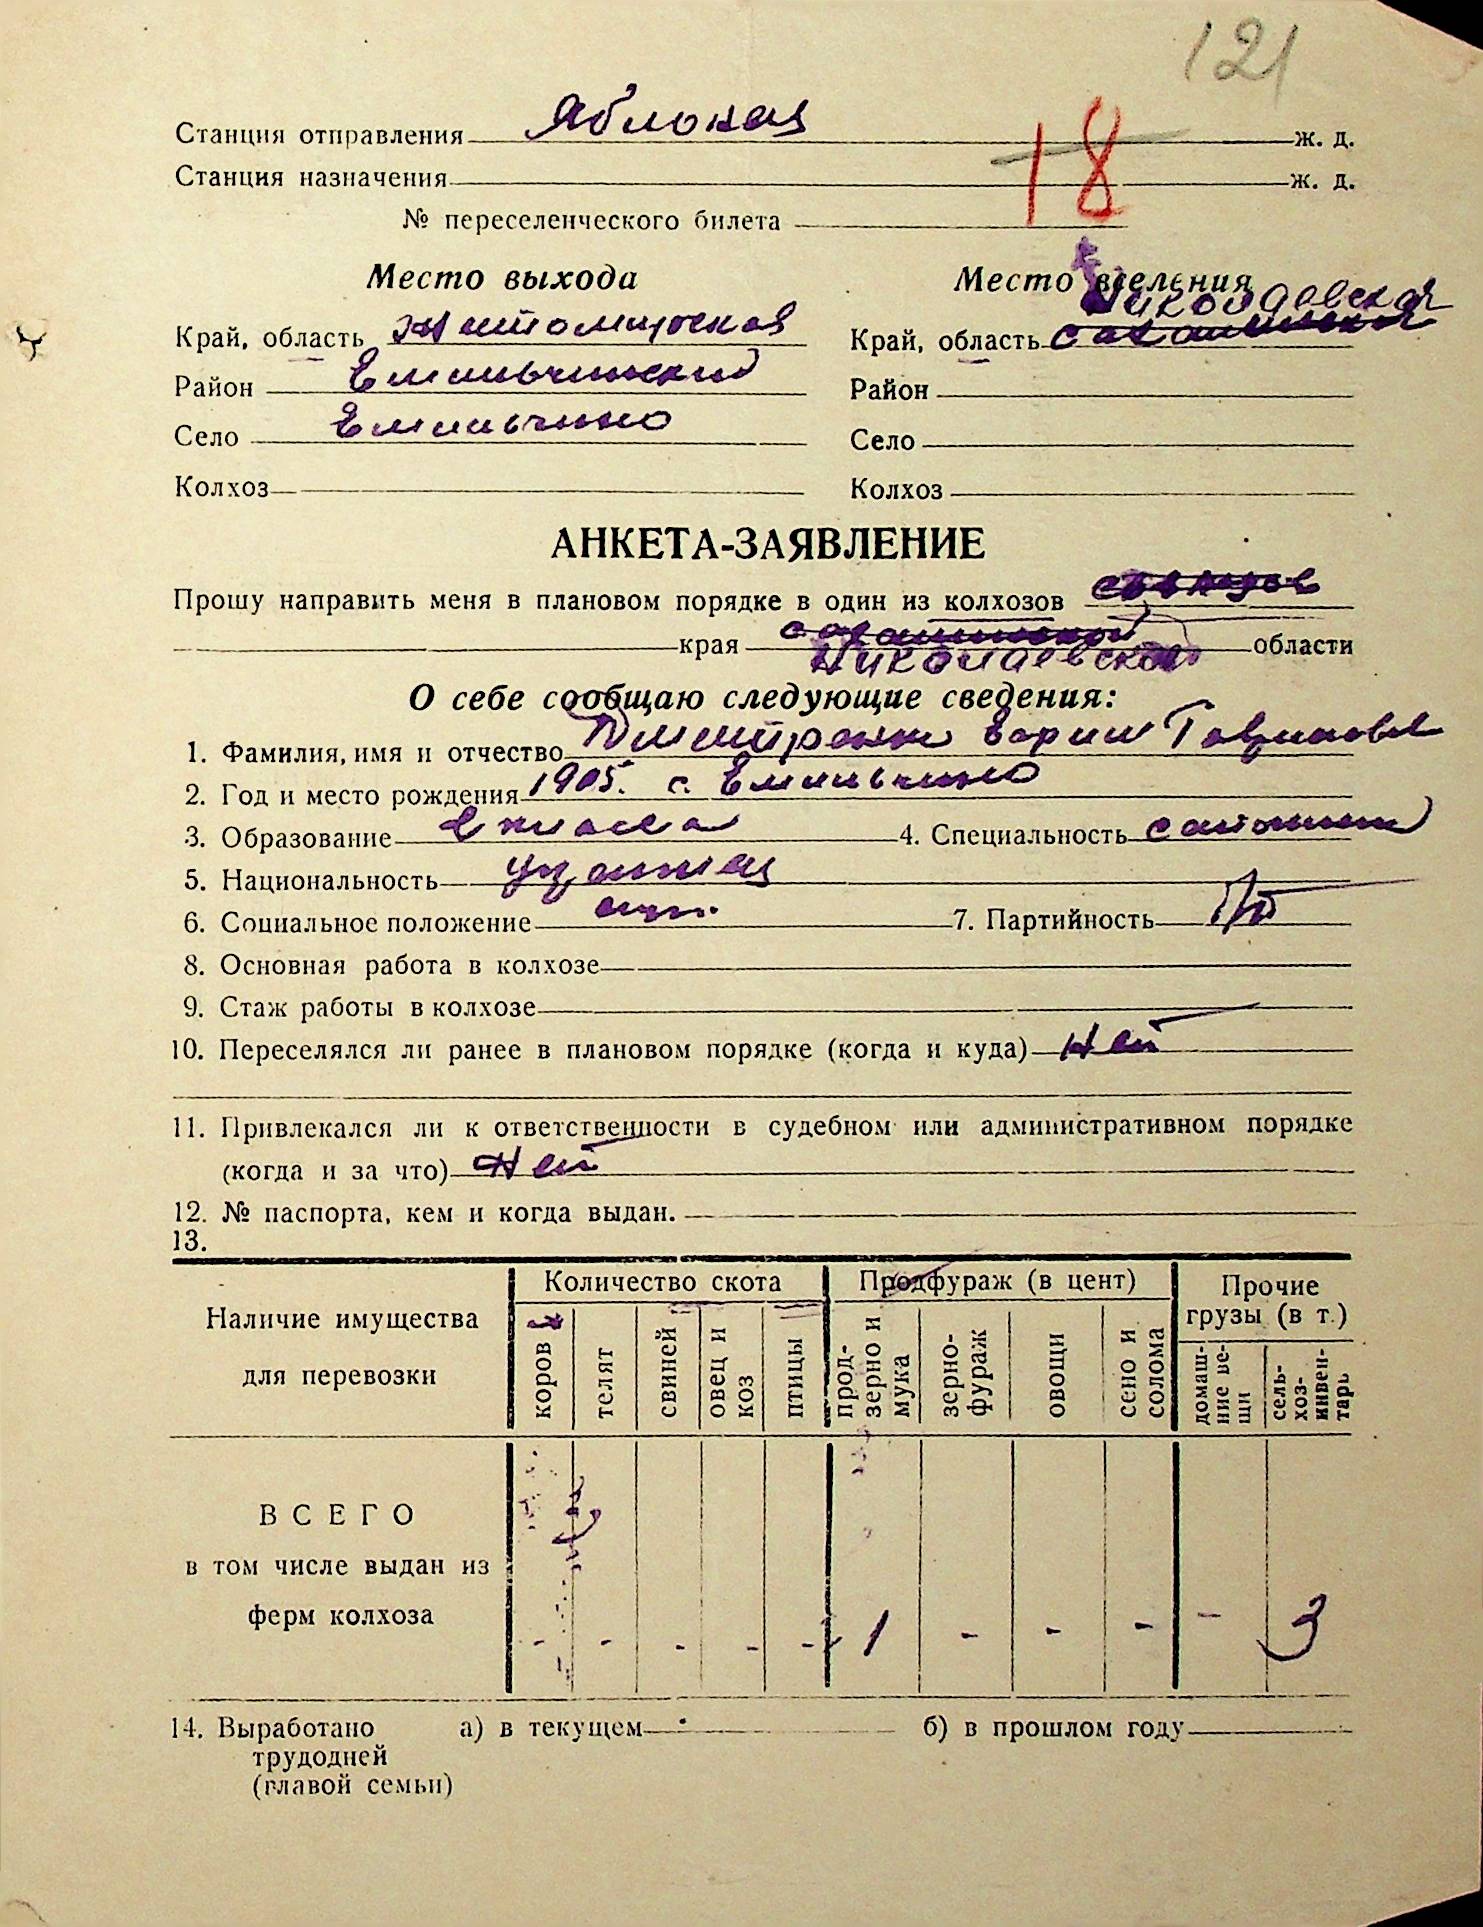 121
Станция отправления Яблонец ж. д.
18
Станция назначения ж. д.
№ переселенческого билета
Место выхода
Место вселения
Николаевская
Край, область Житомирская
Край, область Сахалинская
Район Емильчинский
Район
Село Емильчино
Село
Колхоз
Колхоз
АНКЕТА-ЗАЯВЛЕНИЕ
Прошу направить меня в плановом порядке в один из колхозов
края Сахалинской области
Николаевской
О себе сообщаю следующие сведения:
1. Фамилия, имя и отчество Дмитренко
2. Год и место рождения 1905. с. Емильчино
3. Образование 2 класса 4. Специальность
5. Национальность
6. Социальное положение 7. Партийность б/п
8. Основная работа в колхозе
9. Стаж работы в колхозе
10. Переселялся ли ранее в плановом порядке (когда и куда) Нет
11. Привлекался ли к ответственности в судебном или административном порядке
(когда и за что) Нет
12. № паспорта, кем и когда выдан.
13.
Наличие имущества
для перевозки
Количество скота
Продфураж (в цент)
Прочие
грузы (в т.)
коров
телят
свиней
овец и
коз
птицы
прод-
зерно и
мука
зерно-
фураж
овощи
сено и
солома
домаш-
ние ве-
щи
сель-
хоз-
инвен-
тарь
ВСЕГО
в том числе выдан из
ферм колхоза
- - - - - 1 - - - - 3
14. Выработано а) в текущем б) в прошлом году
трудодней
(главой семьи)